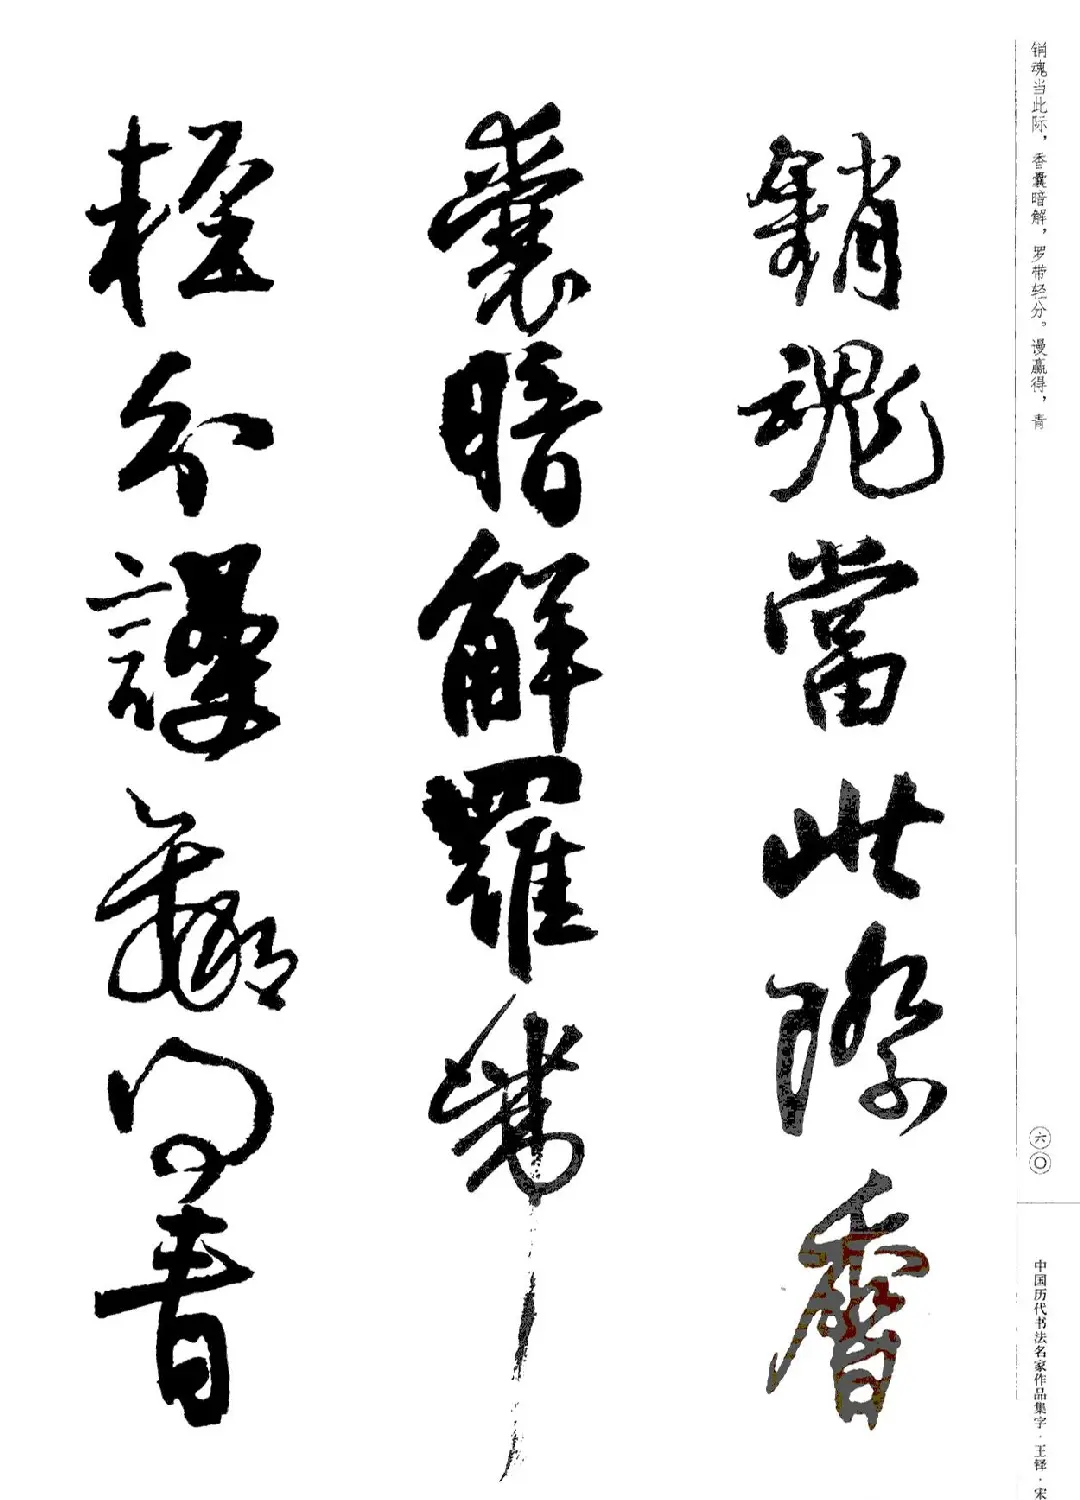 销魂当此际，香囊暗解，罗带轻分。谩赢得，青
六〇
中国历代书法名家作品集字·王铎·宋
銷魂當此際香
囊暗解羅帶
輕分謾贏得青